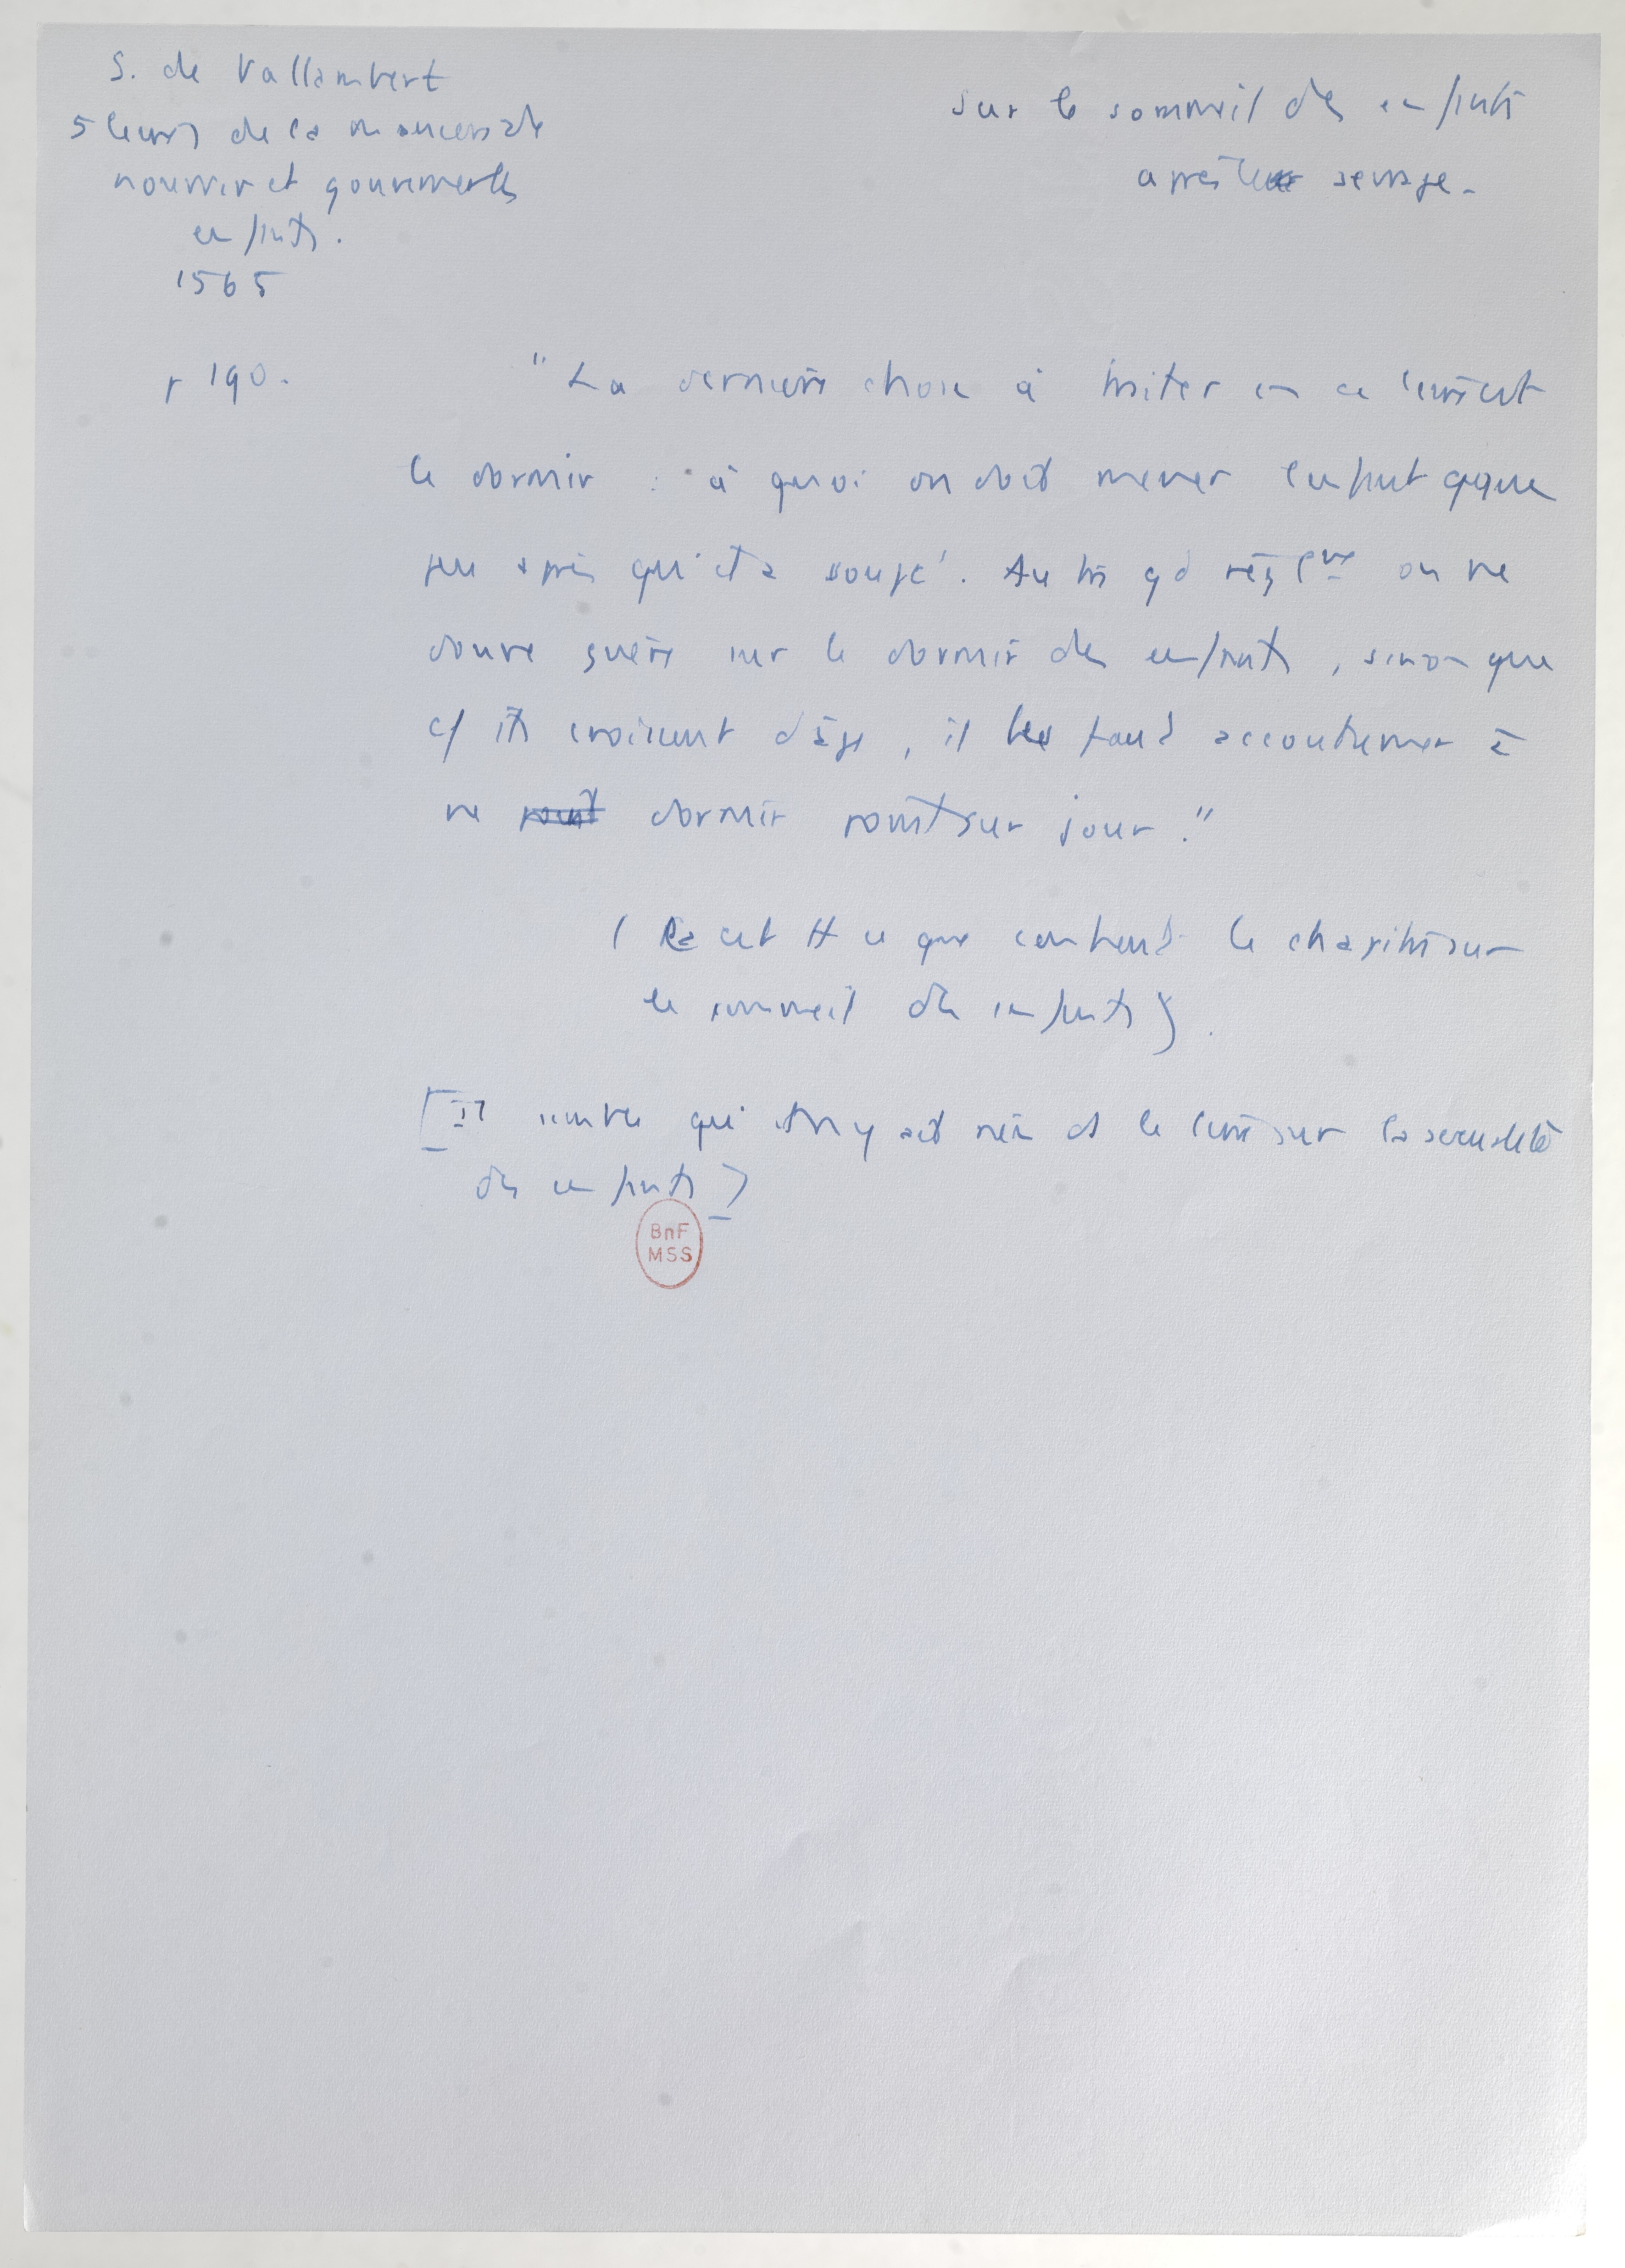 S. de Vallambert
5 livres de la manière de
nourrir et gouverner les
enfants.
1565
sur le sommeil des enfants
après leur sevrage.
p 190.
"La dernière chose à traiter en ce livre est
le dormir : à quoi on doit mener l'enfant qque
peu après qu'il a soupé. Autre gd règle on ne
donne guère sur le dormir des enfants, sinon que
cf ils croissent d'âge, il les faut accoutumer à
ne point dormir point sur jour."
( Ra est tt ce que contient le chapitre sur
le sommeil des enfants ).
[Il semble qu'il n'y ait rien ds le livre sur la sexualité
des enfants]
BnF
MSS